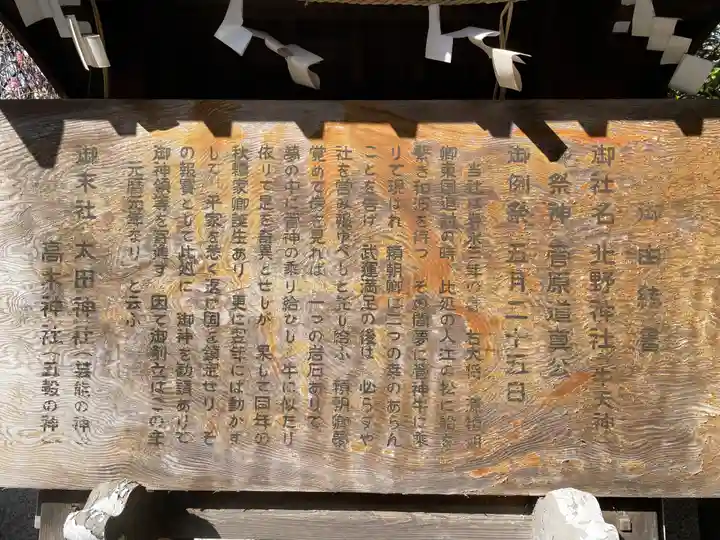 御由緒書
御社名 北野神社(牛天神)
祭神 菅原道真公
御例祭 五月二十五日
当社は寿永三年の 右大将 源頼朝
卿東国 の時 此処の入江の松に船を
繋ぎ和波を待つ その間夢に菅神牛に乗
りて現はれ 頼朝卿に二つの幸のあらん
ことを告げ 武運満足の後は 必らずや
社を営み報ゆべしと 給ふ 頼朝卿夢
覚めて傍を見れば 一つの岩石ありて
夢の中に菅神の乗り給ひし 牛に似たり
依りて是を奇異とせしが 果して同年の
秋 頼家卿誕生あり 更に翌年には動かず
して 平家を悉く返し国を鎮定せり ぞ
の報賽として此処に 御神を勧請ありて
御神領等を寄進す 因て御創立はこの年
元暦元年なり と云ふ
御末社 太田神社(芸能の神)
高木神社(五穀の神)